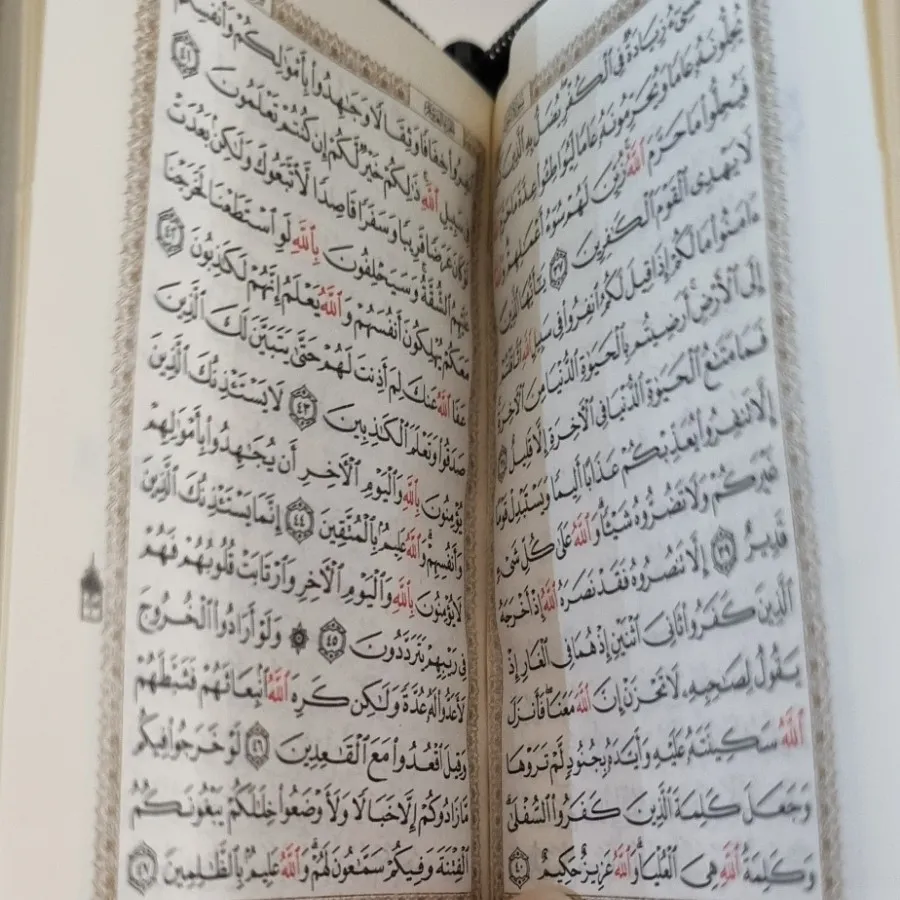 زِيَادَةٌ فِى ٱلْكُفْرِ يُضَلُّ بِهِ ٱلَّذِينَ
يُحِلُّونَهُۥ عَامًا وَيُحَرِّمُونَهُۥ عَامًا لِّيُوَاطِـُٔوا۟ عِدَّةَ مَا حَرَّمَ
فَيُحِلُّوا۟ مَا حَرَّمَ ٱللَّهُ ۚ زُيِّنَ لَهُمْ سُوٓءُ أَعْمَـٰلِهِمْ ۗ
لَا يَهْدِى ٱلْقَوْمَ ٱلْكَـٰفِرِينَ ٣٧ يَـٰٓأَيُّهَا ٱلَّذِينَ
ءَامَنُوا۟ مَا لَكُمْ إِذَا قِيلَ لَكُمُ ٱنفِرُوا۟ فِى سَبِيلِ ٱللَّهِ ٱثَّاقَلْتُمْ
إِلَى ٱلْأَرْضِ ۚ أَرَضِيتُم بِٱلْحَيَوٰةِ ٱلدُّنْيَا مِنَ ٱلْـَٔاخِرَةِ ۚ
فَمَا مَتَـٰعُ ٱلْحَيَوٰةِ ٱلدُّنْيَا فِى ٱلْـَٔاخِرَةِ إِلَّا قَلِيلٌ ٣٨
إِلَّا تَنفِرُوا۟ يُعَذِّبْكُمْ عَذَابًا أَلِيمًا وَيَسْتَبْدِلْ قَوْمًا
غَيْرَكُمْ وَلَا تَضُرُّوهُ شَيْـًٔا ۗ وَٱللَّهُ عَلَىٰ كُلِّ شَىْءٍ
قَدِيرٌ ٣٩ إِلَّا تَنصُرُوهُ فَقَدْ نَصَرَهُ ٱللَّهُ إِذْ أَخْرَجَهُ
ٱلَّذِينَ كَفَرُوا۟ ثَانِىَ ٱثْنَيْنِ إِذْ هُمَا فِى ٱلْغَارِ إِذْ
يَقُولُ لِصَـٰحِبِهِۦ لَا تَحْزَنْ إِنَّ ٱللَّهَ مَعَنَا ۖ فَأَنزَلَ
ٱللَّهُ سَكِينَتَهُۥ عَلَيْهِ وَأَيَّدَهُۥ بِجُنُودٍ لَّمْ تَرَوْهَا
وَجَعَلَ كَلِمَةَ ٱلَّذِينَ كَفَرُوا۟ ٱلسُّفْلَىٰ ۗ
وَكَلِمَةُ ٱللَّهِ هِىَ ٱلْعُلْيَا ۗ وَٱللَّهُ عَزِيزٌ حَكِيمٌ ٤٠
ٱنفِرُوا۟ خِفَافًا وَثِقَالًا وَجَـٰهِدُوا۟ بِأَمْوَٰلِكُمْ وَأَنفُسِكُمْ
فِى سَبِيلِ ٱللَّهِ ۚ ذَٰلِكُمْ خَيْرٌ لَّكُمْ إِن كُنتُمْ تَعْلَمُونَ ٤١
لَوْ كَانَ عَرَضًا قَرِيبًا وَسَفَرًا قَاصِدًا لَّٱتَّبَعُوكَ وَلَـٰكِنۢ بَعُدَتْ
عَلَيْهِمُ ٱلشُّقَّةُ ۚ وَسَيَحْلِفُونَ بِٱللَّهِ لَوِ ٱسْتَطَعْنَا لَخَرَجْنَا
مَعَكُمْ يُهْلِكُونَ أَنفُسَهُمْ وَٱللَّهُ يَعْلَمُ إِنَّهُمْ لَكَـٰذِبُونَ ٤٢
عَفَا ٱللَّهُ عَنكَ لِمَ أَذِنتَ لَهُمْ حَتَّىٰ يَتَبَيَّنَ لَكَ ٱلَّذِينَ
صَدَقُوا۟ وَتَعْلَمَ ٱلْكَـٰذِبِينَ ٤٣ لَا يَسْتَـْٔذِنُكَ ٱلَّذِينَ
يُؤْمِنُونَ بِٱللَّهِ وَٱلْيَوْمِ ٱلْـَٔاخِرِ أَن يُجَـٰهِدُوا۟ بِأَمْوَٰلِهِمْ
وَأَنفُسِهِمْ ۗ وَٱللَّهُ عَلِيمٌۢ بِٱلْمُتَّقِينَ ٤٤ إِنَّمَا يَسْتَـْٔذِنُكَ ٱلَّذِينَ
لَا يُؤْمِنُونَ بِٱللَّهِ وَٱلْيَوْمِ ٱلْـَٔاخِرِ وَٱرْتَابَتْ قُلُوبُهُمْ فَهُمْ
فِى رَيْبِهِمْ يَتَرَدَّدُونَ ٤٥ ۞ وَلَوْ أَرَادُوا۟ ٱلْخُرُوجَ
لَأَعَدُّوا۟ لَهُۥ عُدَّةً وَلَـٰكِن كَرِهَ ٱللَّهُ ٱنۢبِعَاثَهُمْ فَثَبَّطَهُمْ
وَقِيلَ ٱقْعُدُوا۟ مَعَ ٱلْقَـٰعِدِينَ ٤٦ لَوْ خَرَجُوا۟ فِيكُم
مَّا زَادُوكُمْ إِلَّا خَبَالًا وَلَأَوْضَعُوا۟ خِلَـٰلَكُمْ يَبْغُونَكُمُ
ٱلْفِتْنَةَ وَفِيكُمْ سَمَّـٰعُونَ لَهُمْ ۗ وَٱللَّهُ عَلِيمٌۢ بِٱلظَّـٰلِمِينَ ٤٧